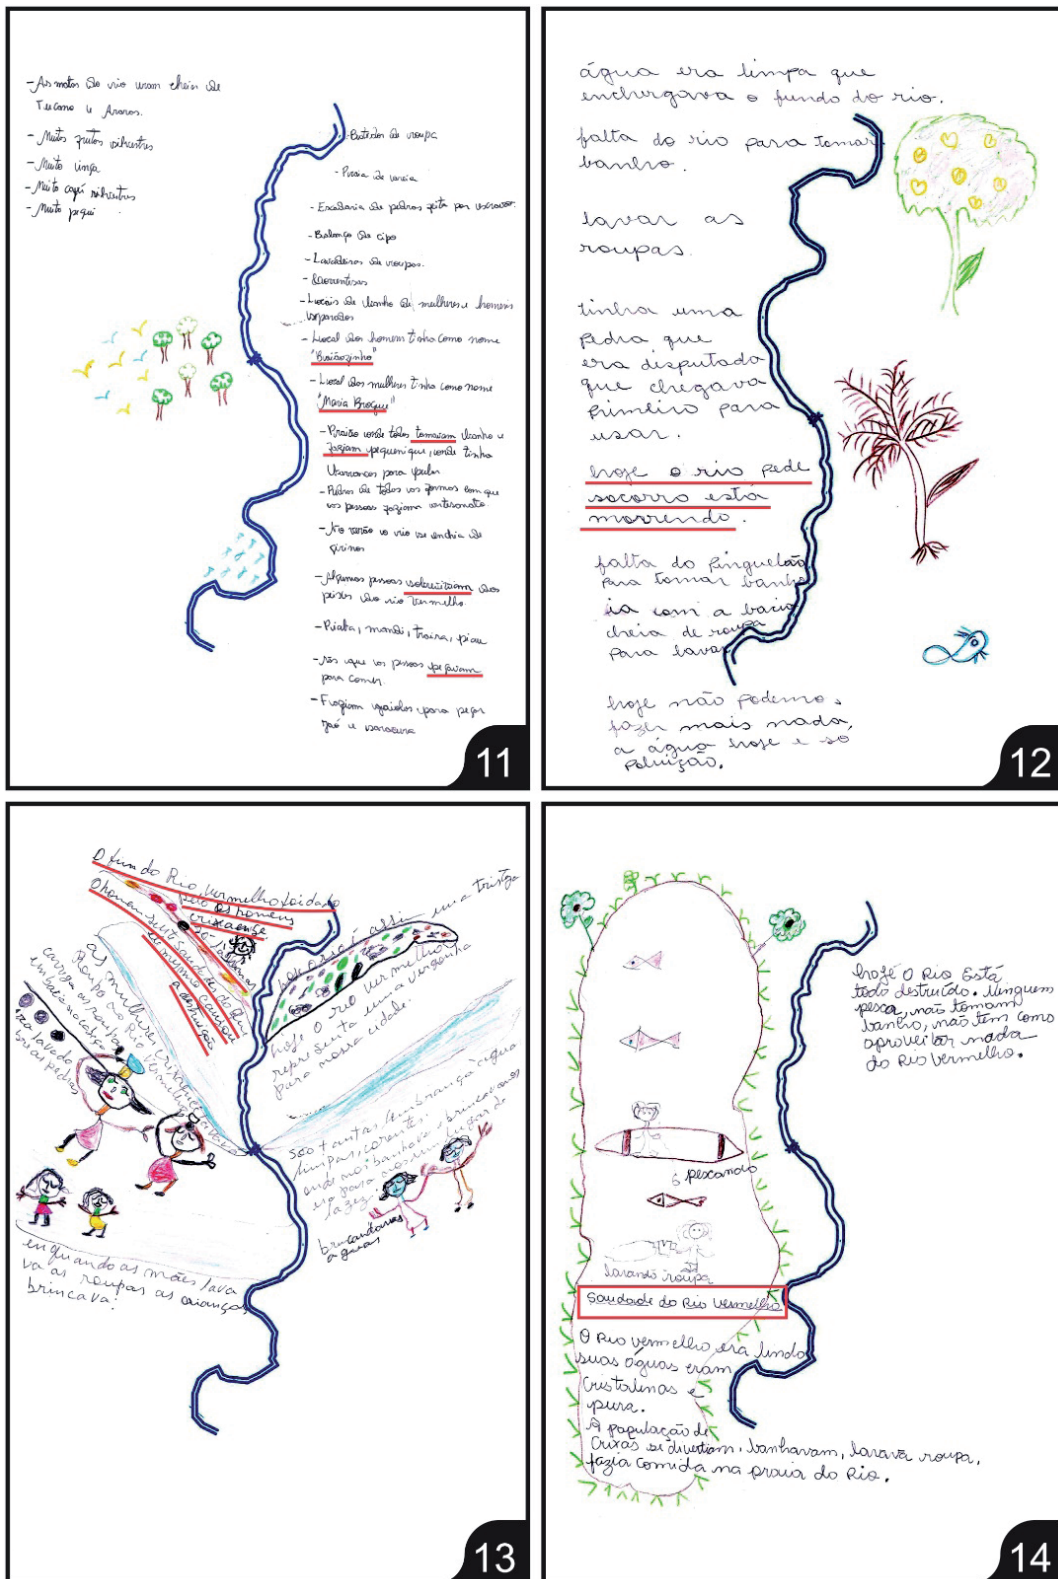 - As matas do rio eram cheias de
Tucano e Araras.
- Muitos frutos silvestres
- Muito ingá
- Muito cajú silvestres
- Muito pequi
- Batedor de roupa
- Praia de areia
- Escadaria de pedras feita por escravos
- Balanço de cipo
- Lavadeiras de roupas.
- Locais de banho de mulheres e homens
separados
- Local dos homens tinha como nome
"Poçãozinho"
- Local das mulheres tinha como nome
"Maria"
- onde todos tomavam banho e
faziam piquenique, onde tinha
barrancos para pular
- Pedras de todas as formas com que
as pessoas faziam artesanato
- No verão o rio se enchia de
girinos
- Algumas pessoas sobreviviam dos
peixes do rio vermelho.
- Piaba, mandi, traíra, piau
- rãs que as pessoas pegavam
para comer.
para pegar
e saracura
11
água era limpa que
enchergava o fundo do rio.
falta do rio para tomar
banho.
lavar as
roupas.
tinha uma
pedra que
era disputada
que chegava
primeiro para
usar.
hoje o rio pede
socorro está
morrendo.
falta do pinguelão
para tomar banho
ia com a bacia
cheia de roupa
para lavar
hoje não podemos
fazer mais nada,
a água hoje e só
poluição.
12
O fim do Rio vermelho foi dado
pelo os homens
crixaense
O homem sente saudades do que
ele mesmo causou
a destruição
as mulheres crixaense lavava
Roupa no Rio Vermelho
carrega as roupas
em bacia na cabeça
são lavada
nas pedras
assim uma tristeza
hoje o rio vermelho
representa uma vergonha
para nossa
cidade.
são tantas lembrança água
limpas, corentes.
onde nois banhava e brincavamos
era para nos um lugar de
lazer.
brincando nas
aguas
enquando as mães lava
va as roupas as crianças
brincava.
13
hoje o Rio Está
todo destruido. Ninguem
pesca, não tomam
banho, não tem como
aproveitar nada
do Rio Vermelho.
pescando
lavando roupa
Saudade do Rio Vermelho
O Rio vermelho era lindo
suas águas eram
cristalinas e
pura.
A população de
Crixás se divertiam, banhavam, lavava roupa,
fazia comida na praia do Rio.
14